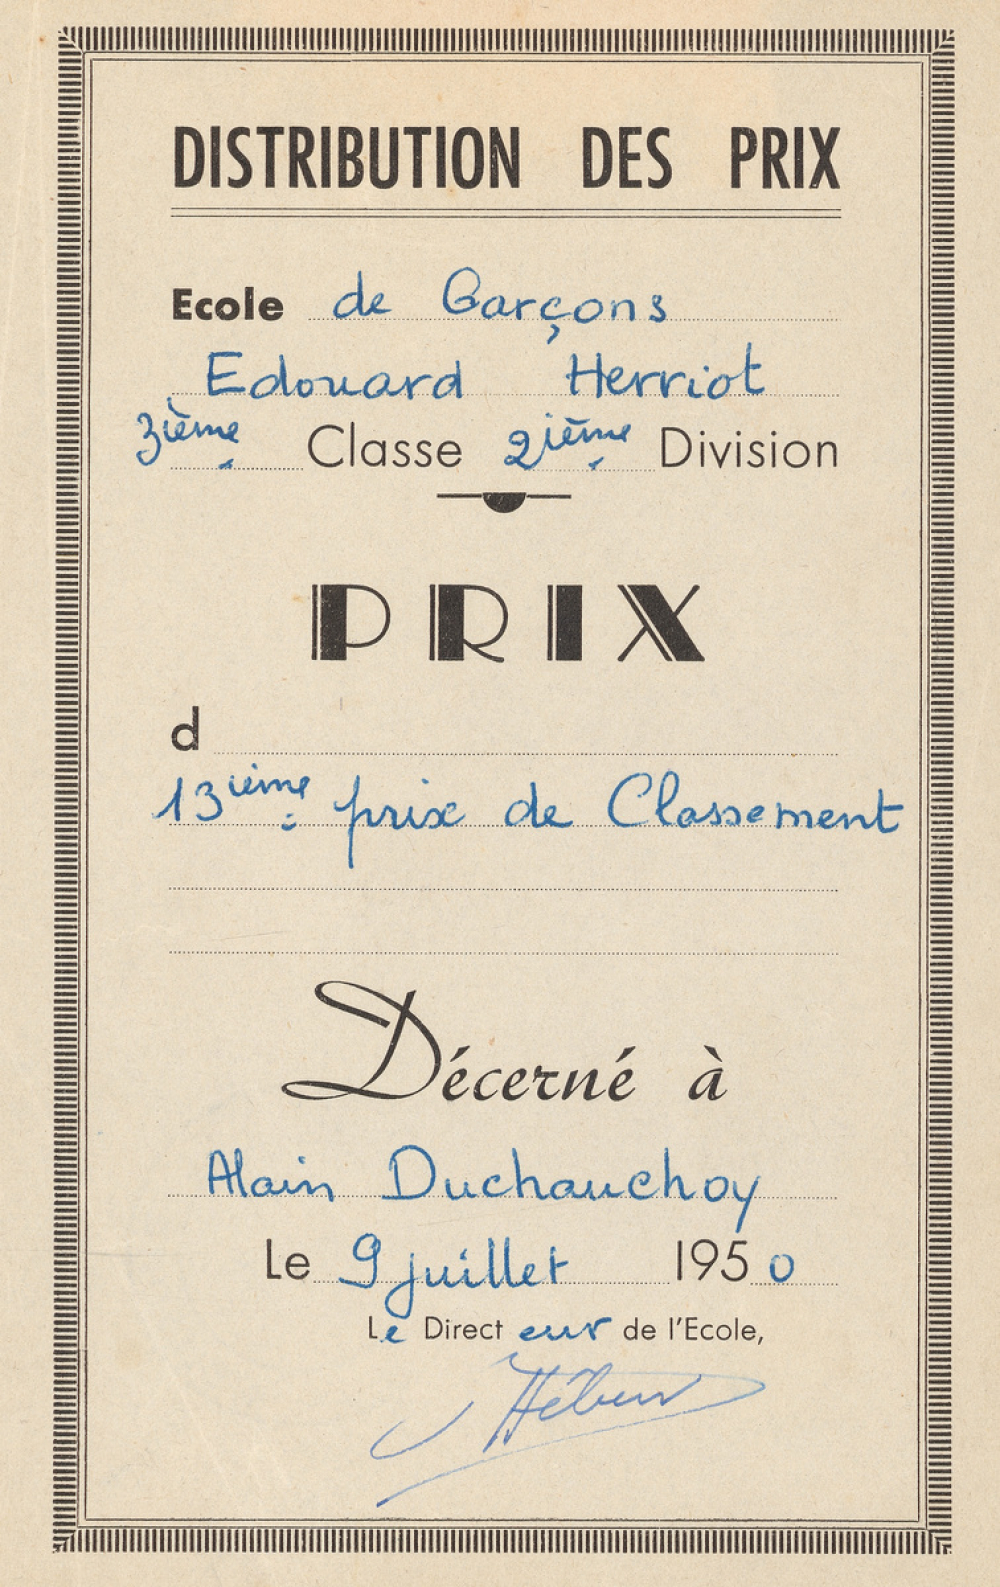 DISTRIBUTION DES PRIX
Ecole de Garçons
Edouard Herriot
3ième Classe 2ième Division
PRIX
d
13ième prix de Classement
Décerné à
Alain Duchauchoy
Le 9 juillet 1950
Le Directeur de l'Ecole,